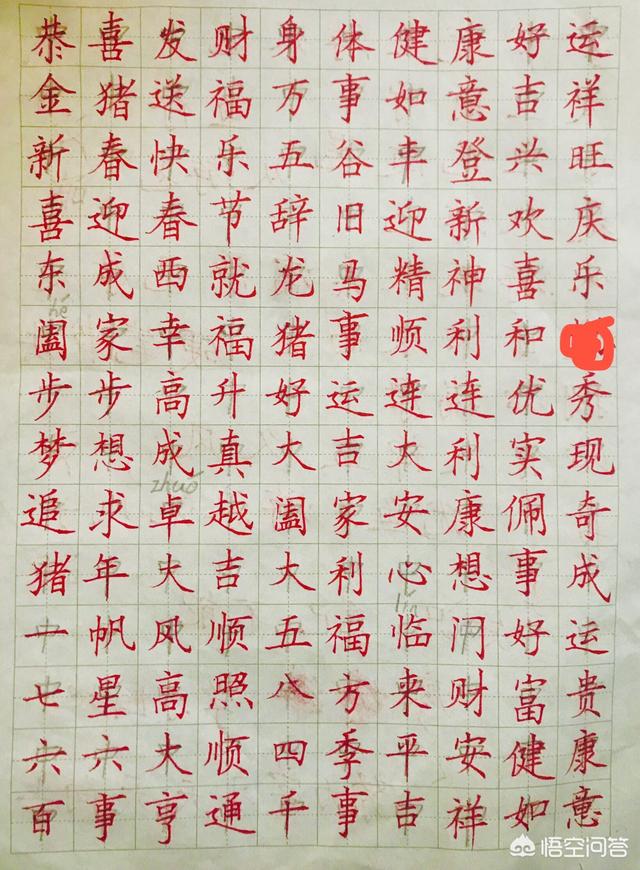 恭喜发财身体健康好运
金猪送福万事如意吉祥
新春快乐五谷丰登兴旺
喜迎春节辞旧迎新欢庆
东成西就龙马精神喜乐
hé
阖家幸福猪事顺利和
步步高升好运连连优秀
梦想成真大吉大利实现
zhuó
追求卓越阖家安康佩奇
猪年大吉大利心想事成
lín
一帆风顺五福临门好运
七星高照八方来财富贵
六六大顺四季平安健康
百事亨通千事吉祥如意
悟空问答